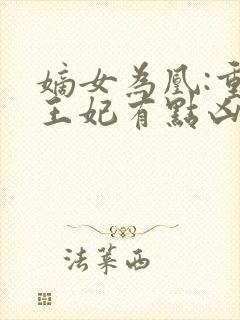 嫡女為凰:重
王妃有點凶
法萊西